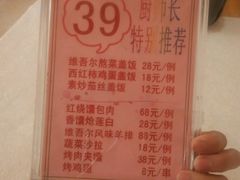 39
厨师长
特别推荐
维吾尔熬菜盖饭 28元/例
西红柿鸡蛋盖饭 18元/例
素炒茄丝盖饭 12元/例
红烧馕包肉 68元/例
香馕炝莲白 28元/例
维吾尔风味年排 89元/例
蔬菜沙拉 18元/例
烤肉夹馕 38元/例
烤鸡 8元/串